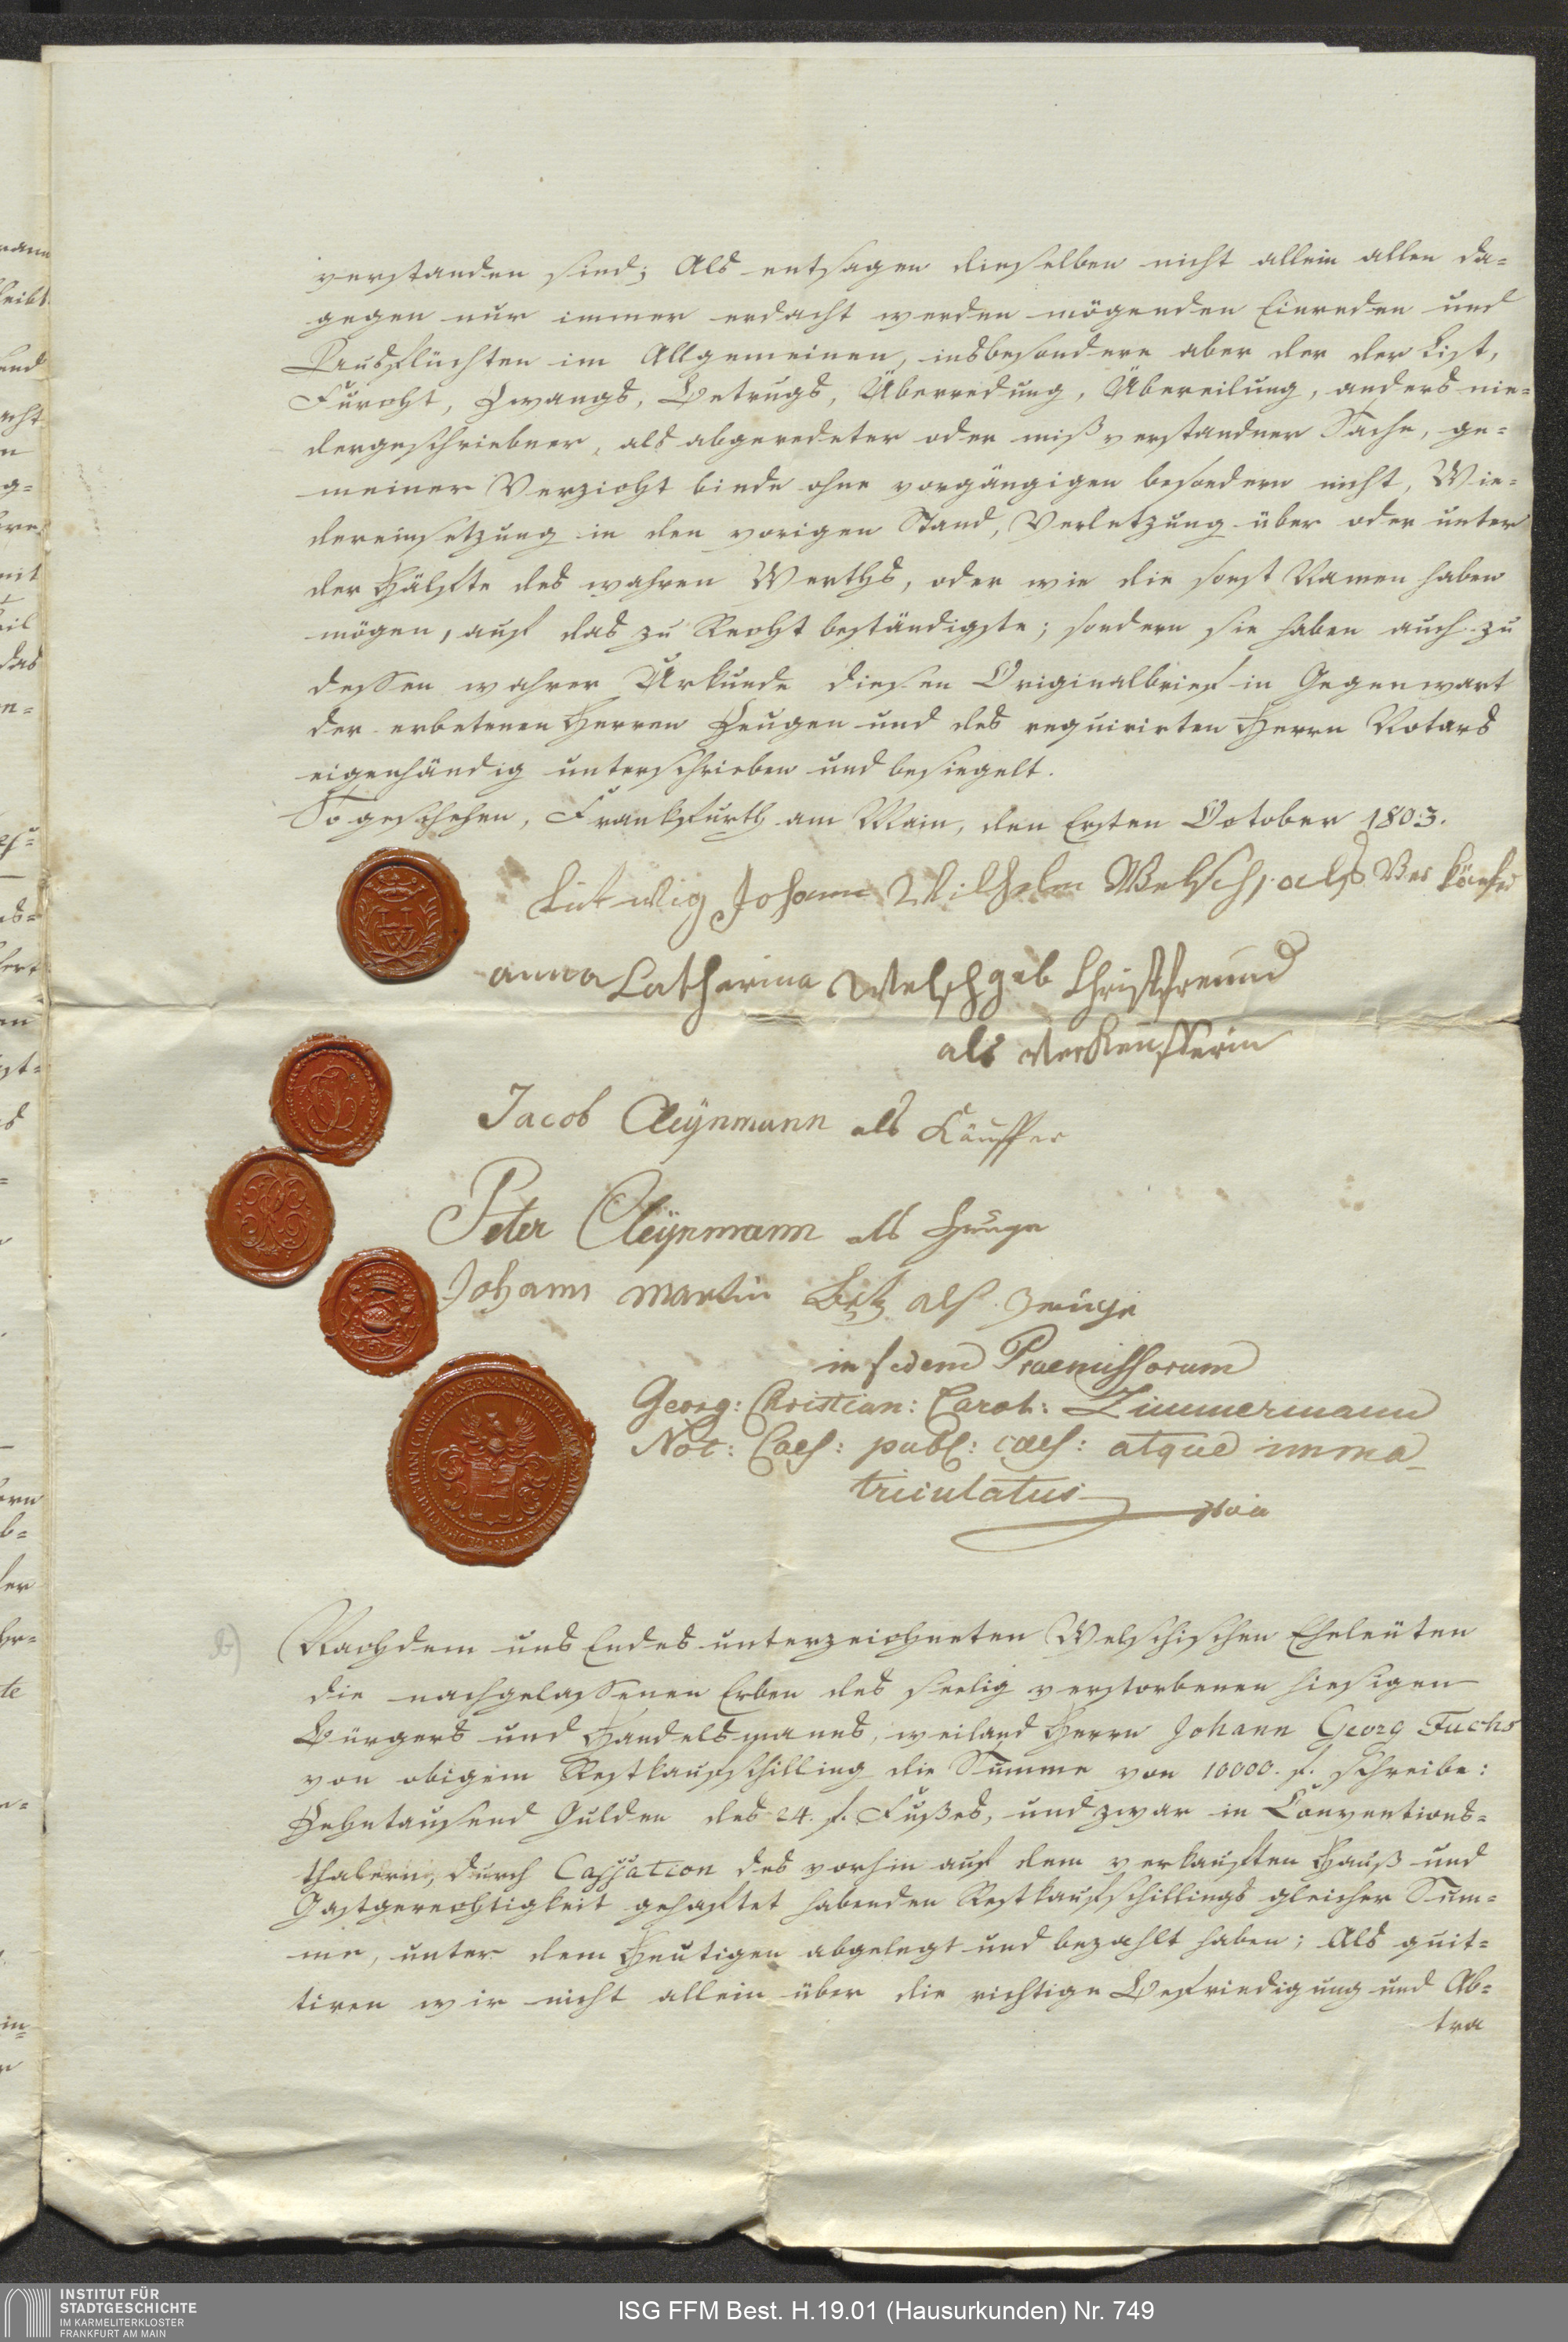 verstanden sind; Als entsagen dieselben nicht allein allen da=
gegen nur immer erdacht werden mögenden Einreden und
Ausflüchten im Allgemeinen, insbesondere aber der der List,
Furcht, Zwangs, Betrugs, Überredung, Übereilung, anders nie=
dergeschriebner, als abgeredeter oder mißverstandner Sache, ge=
meiner Verzicht binde ohne vorgängigen besondern nicht, Wie=
dereinsetzung in den vorigen Stand, Verletzung über oder unter
der Hälfte des wahren Werths, oder wie die sonst Namen haben
mögen, auf das zu Recht beständigste; sondern sie haben auch zu
dessen wahrer Urkunde diesen Originalbrief in Gegenwart
der erbetenen Herren Zeugen und des requirirten Herrn Notars
eigenhändig unterschrieben und besiegelt.
So geschehen, Frankfurth am Main, den Ersten October 1803.
Ludwig Johann Wilhelm Welsch, als Verkäufer
anna Catharina Welsch geb Christfreund
als Verkeufferin
Jacob Cleÿnmann als Käuffer
Peter Cleÿnmann als Zeuge
Johann Martin als Zeuge
in fidem Praemissorum
Georg: Christian: Carol: Zimmermann
Not: Caes: publ: caes: atque imma_
triculatus
LIW
b)
Nachdem uns Endes unterzeichneten Welschischen Eheleuten
die nachgelassenen Erben des seelig verstorbenen hiesigen
Bürgers und Handelsmanns, weiland Herrn Johann Georg Fuchs
von obigem Restkaufschilling die Summe von 10000. f. schreibe:
Zehntausend Gulden des 24. f. Fußes, und zwar in Conventions=
thalern, durch Cassation des vorhin auf dem verkauften Hauß und
Gastgerechtigkeit gehafftet habenden Restkaufschillings gleicher Sum=
me, unter dem Heutigen abgelegt und bezahlt haben; Als quit=
tiren wir nicht allein über die richtige Befriedigung und Ab=
tra
INSTITUT FÜR
STADTGESCHICHTE
IM KARMELITERKLOSTER
FRANKFURT AM MAIN
ISG FFM Best. H.19.01 (Hausurkunden) Nr. 749